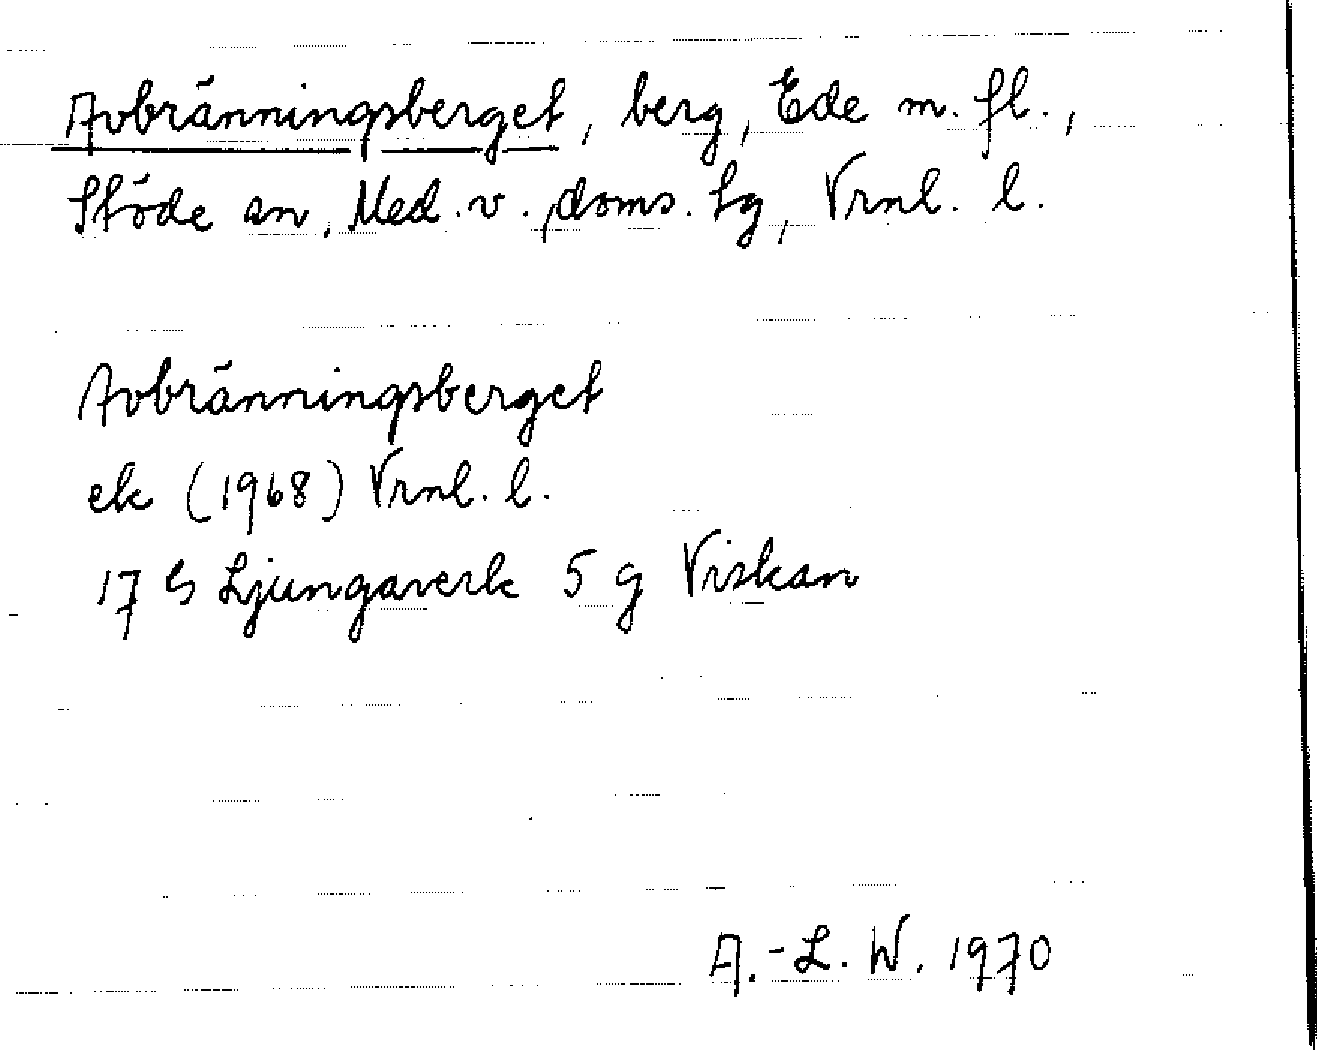 Avbränningsberget, berg, Ede m. fl.,
Stöde sn, Med. v., doms. lg, Vrnl. l.
Avbränningsberget
ek (1968) Vrnl. l.
17 G Ljungaverk 5 g Viskan
A.-L. W. 1970